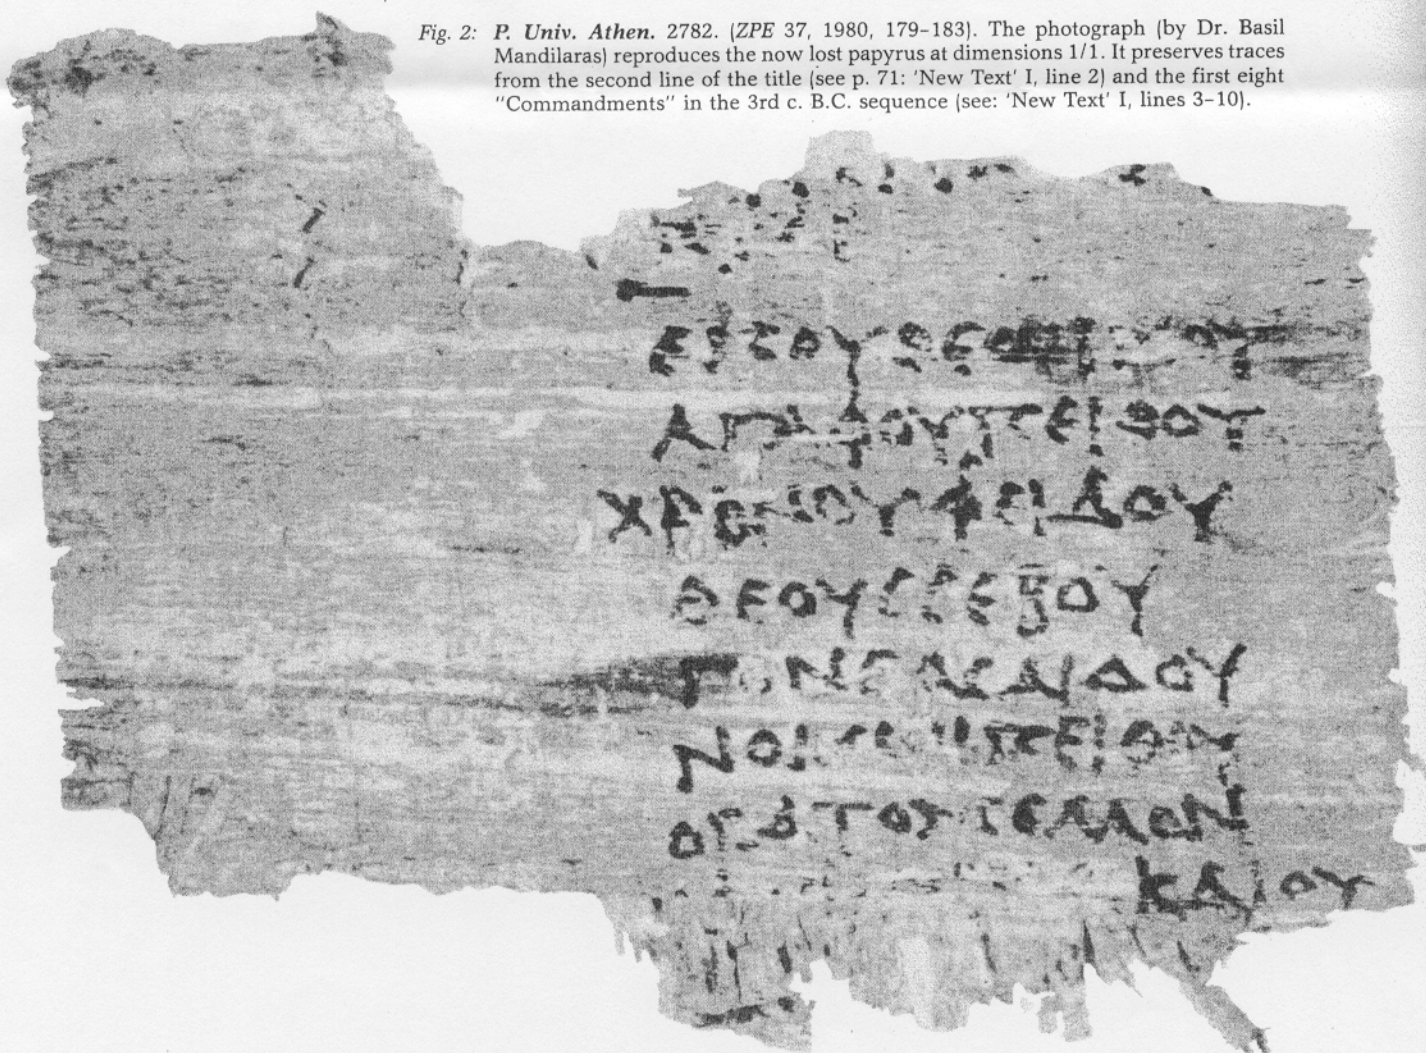 Fig. 2: P. Univ. Athen. 2782. (ZPE 37, 1980, 179–183). The photograph (by Dr. Basil
Mandilaras) reproduces the now lost papyrus at dimensions 1/1. It preserves traces
from the second line of the title (see p. 71: 'New Text' I, line 2) and the first eight
"Commandments" in the 3rd c. B.C. sequence (see: 'New Text' I, lines 3–10).
ΧΡΟΝΟΥΦΕΙΔΟΥ
ΘΕΟΥΣΣΕΒΟΥ
ΓΟΝΕΙΣΑΙΔΟΥ
ΠΕΙΘΟΥ
ΚΑΙΟΥ